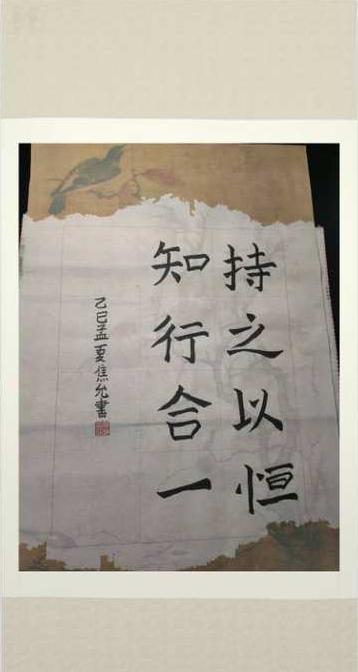 持之以恒
知行合一
乙巳孟夏焦允書